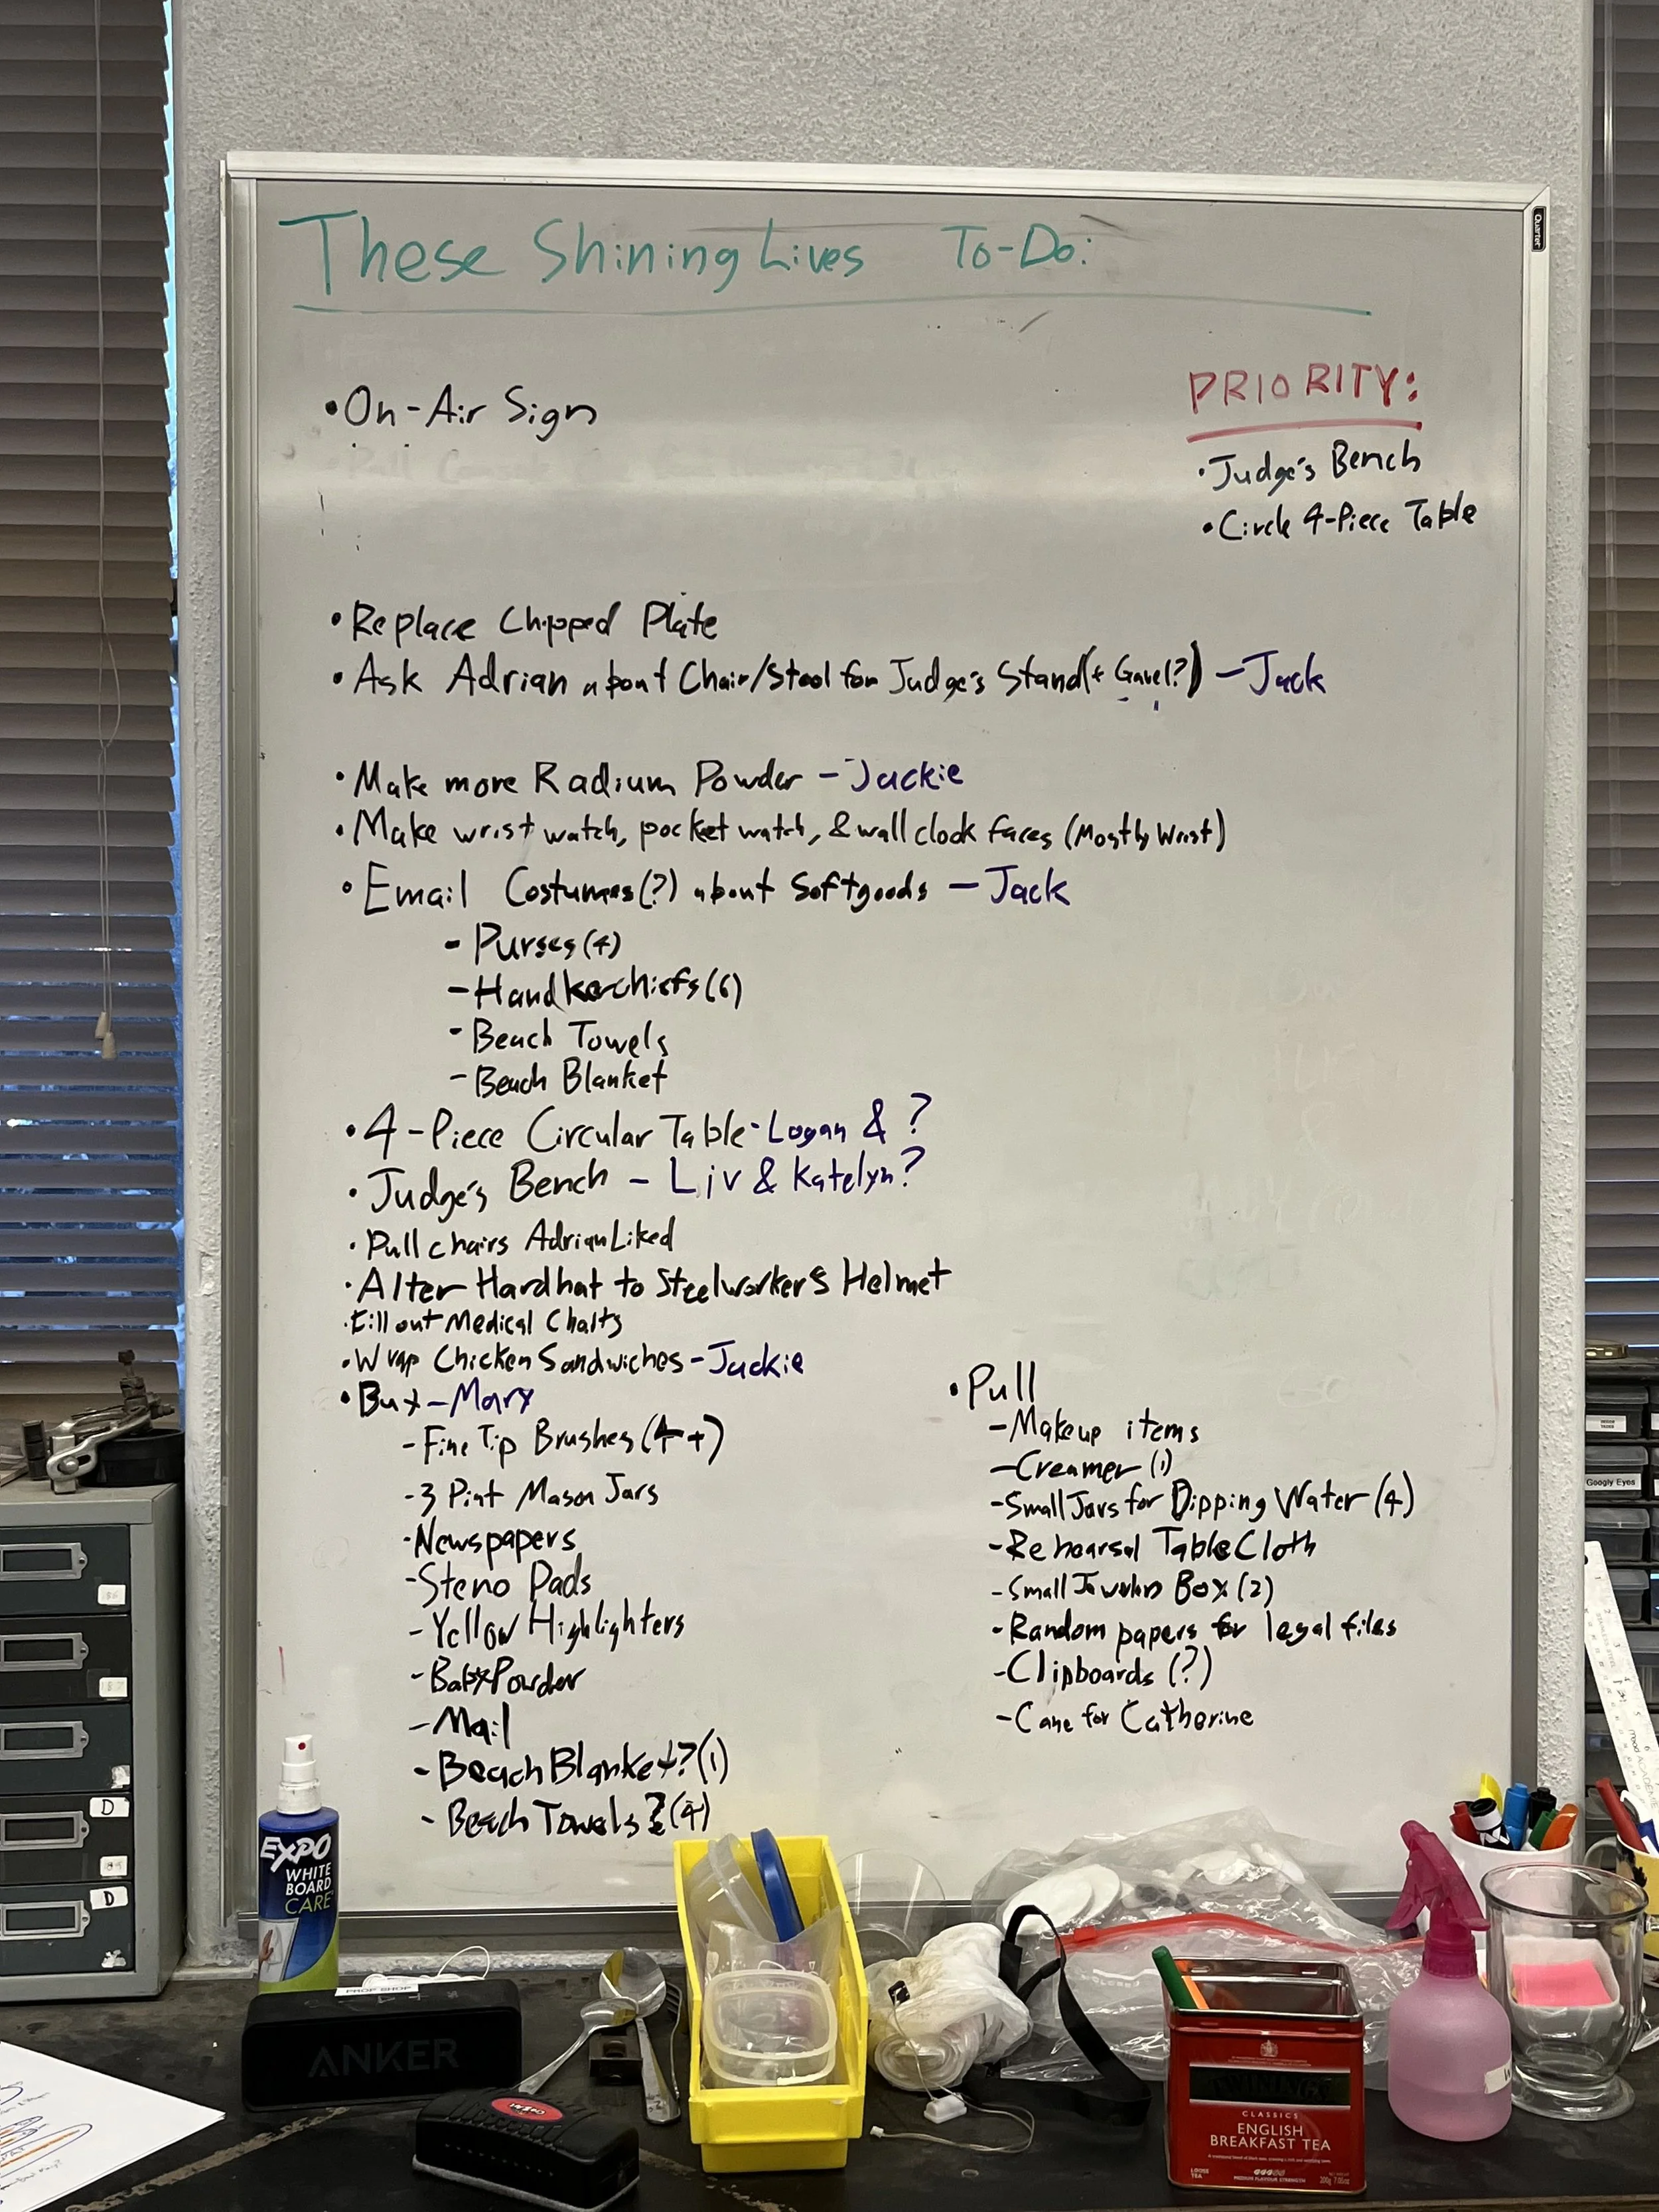 These Shining Lives To-Do:
PRIORITY:
• Judge's Bench
• Circle 4-Piece Table
• On-Air Sign
• Replace Chipped Plate
• Ask Adrian about Chair/Stool for Judge's Stand (+ Gavel?) - Jack
• Make more Radium Powder - Jackie
• Make wrist watch, pocket watch, & wall clock faces (Mostly Wrist)
• Email Costumes(?) about Softgoods - Jack
- Purses (4)
- Handkerchiefs (6)
- Beach Towels
- Beach Blanket
• 4-Piece Circular Table - Logan & ?
• Judge's Bench - Liv & Katelyn?
• Pull chairs Adrian Liked
• Alter Hardhat to Steelworker's Helmet
• Fill out Medical Charts
• Wrap Chicken Sandwiches - Jackie
• Buy - Mary
- Fine Tip Brushes (4+)
- 3 Pint Mason Jars
- Newspapers
- Steno Pads
- Yellow Highlighters
- Baby Powder
- Mail
- Beach Blanket? (1)
- Beach Towels? (4)
• Pull
- Makeup items
- Creamer (1)
- Small Jars for Dipping Water (4)
- Rehearsal TableCloth
- Small Box (2)
- Random papers for legal files
- Clipboards (?)
- Cane for Catherine
Quartet
Googly Eyes
D
D
EXPO
WHITE
BOARD
CARE
PROP SHOP
ANKER
TWININGS
CLASSICS
ENGLISH
BREAKFAST TEA
LOOSE
TEA
200g 7.05oz